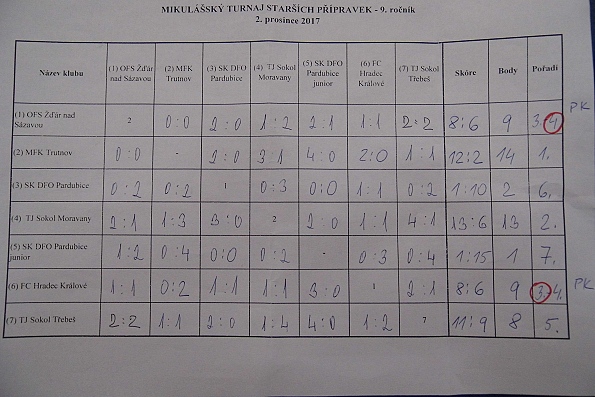 MIKULÁŠSKÝ TURNAJ STARŠÍCH PŘÍPRAVEK - 9. ročník
2. prosince 2017
Název klubu (1) OFS Žďár nad Sázavou (2) MFK Trutnov (3) SK DFO Pardubice (4) TJ Sokol Moravany (5) SK DFO Pardubice junior (6) FC Hradec Králové (7) TJ Sokol Třebeš Skóre Body Pořadí
(1) OFS Žďár nad Sázavou 2 0:0 2:0 1:2 2:1 1:1 2:2 8:6 9 3.-4. PK
(2) MFK Trutnov 0:0 - 2:0 3:1 4:0 2:0 1:1 12:2 14 1.
(3) SK DFO Pardubice 0:2 0:2 1 0:3 0:0 1:1 0:2 1:10 2 6.
(4) TJ Sokol Moravany 2:1 1:3 3:0 2 2:0 1:1 4:1 13:6 13 2.
(5) SK DFO Pardubice junior 1:2 0:4 0:0 0:2 - 0:3 0:4 1:15 1 7.
(6) FC Hradec Králové 1:1 0:2 1:1 1:1 3:0 1 2:1 8:6 9 3.-4. PK
(7) TJ Sokol Třebeš 2:2 1:1 2:0 1:4 4:0 1:2 7 11:9 8 5.